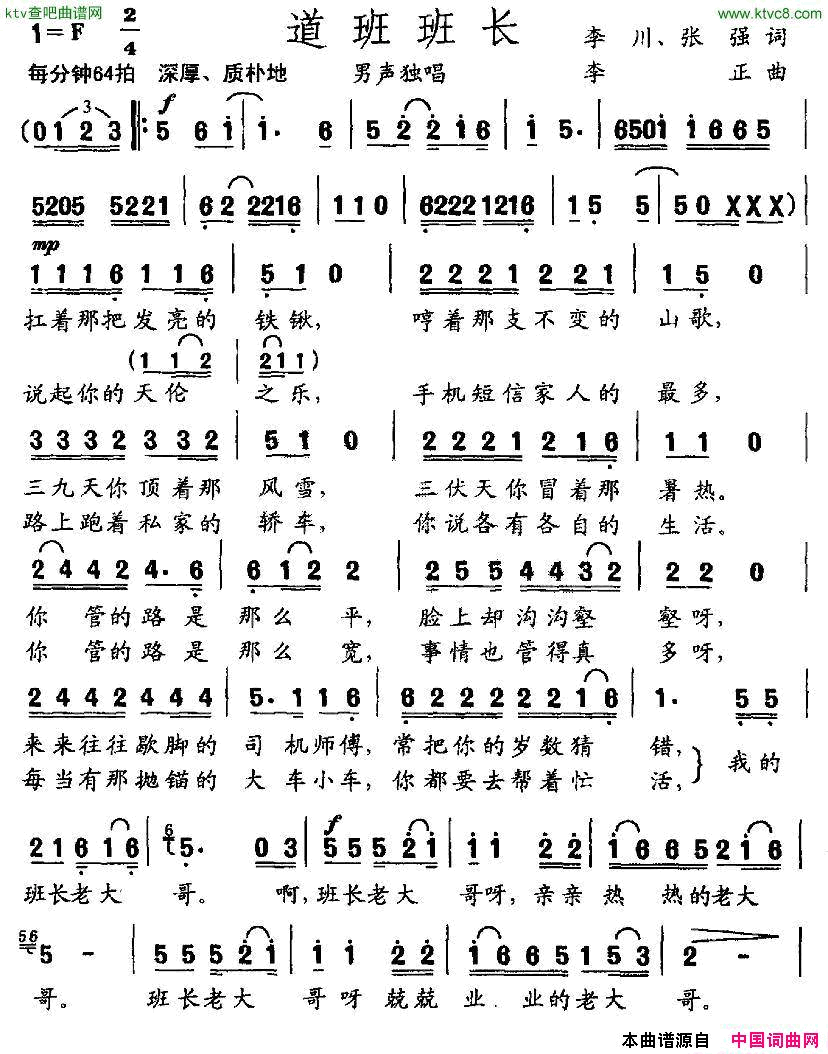 ktv查吧曲谱网
www.ktvc8.com
1=F 2/4 道班班长 李川、张强词
每分钟64拍 深厚、质朴地 男声独唱 李正曲
f
(0 1 2 3 ‖: 5 6 i | i· 6 | 5 2 2 i 6 | i 5· | 6501 i665 |
5205 5221 | 6 2 2216 | 1 1 0 | 6222 1216 | 1 5 5 | 5 0 X X X )
mp
1 1 1 6 1 1 6 | 5 1 0 | 2 2 2 1 2 2 1 | 1 5 0
扛着那把发亮的 铁锹, 哼着那支不变的 山歌,
(1 1 2 | 2 1 1)
说起你的天伦 之乐, 手机短信家人的 最多,
3 3 3 2 3 3 2 | 5 1 0 | 2 2 2 1 2 1 6 | 1 1 0
三九天你顶着那 风雪, 三伏天你冒着那 暑热。
路上跑着私家的 轿车, 你说各有各自的 生活。
2 4 4 2 4· 6 | 6 1 2 2 | 2 5 5 4 4 3 2 | 2 2 0
你管的路是 那么平, 脸上却沟沟壑 壑呀,
你管的路是 那么宽, 事情也管得真 多呀,
2 4 4 2 4 4 4 | 5· 1 1 6 | 6 2 2 2 2 2 1 6 | 1· 5 5
来来往往歇脚的 司机师傅, 常把你的岁数猜 错, 我的
每当有那抛锚的 大车小车, 你都要去帮着忙 活,
2 1 6 1 6 | 6 5· 0 3 | f 5 5 5 2 i | i i 2 2 | i 6 6 5 5 2 i 6
班长老大 哥。 啊, 班长老大 哥呀, 亲亲热 热的老大
56 5 - | 5 5 5 2 i | i i 2 2 | i 6 6 5 1 5 3 | 2 -
哥。 班长老大 哥呀 兢兢业 业的老大 哥。
本曲谱源自 中国词曲网